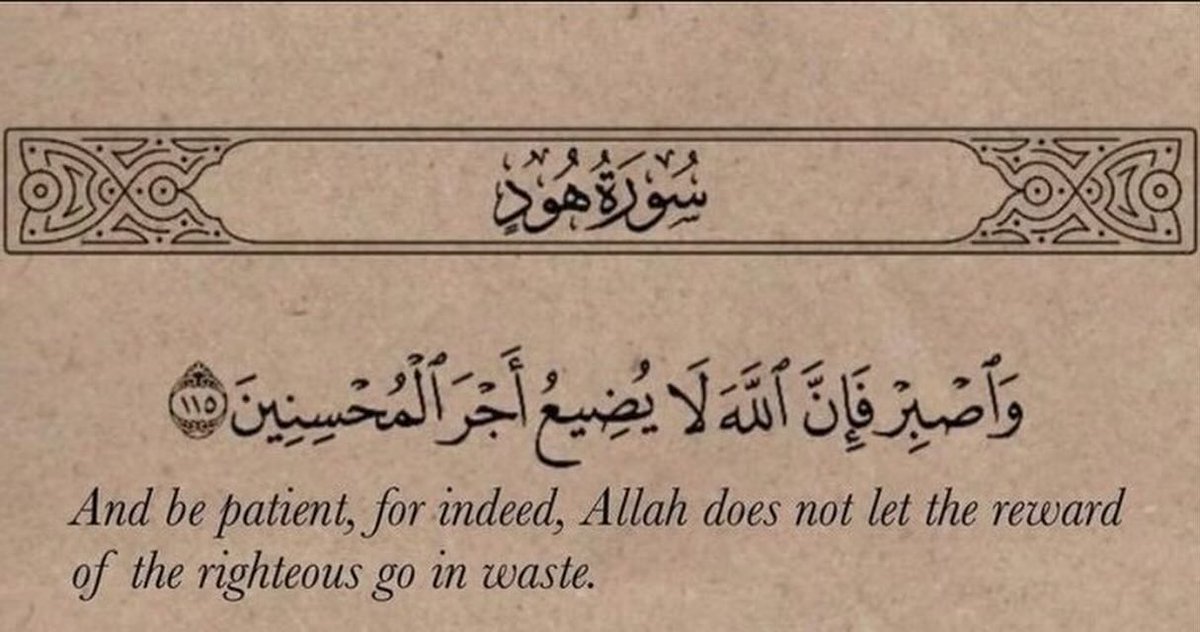 سُورَةُ هُودٍ
وَٱصْبِرْ فَإِنَّ ٱللَّهَ لَا يُضِيعُ أَجْرَ ٱلْمُحْسِنِينَ ١١٥
And be patient, for indeed, Allah does not let the reward
of the righteous go in waste.